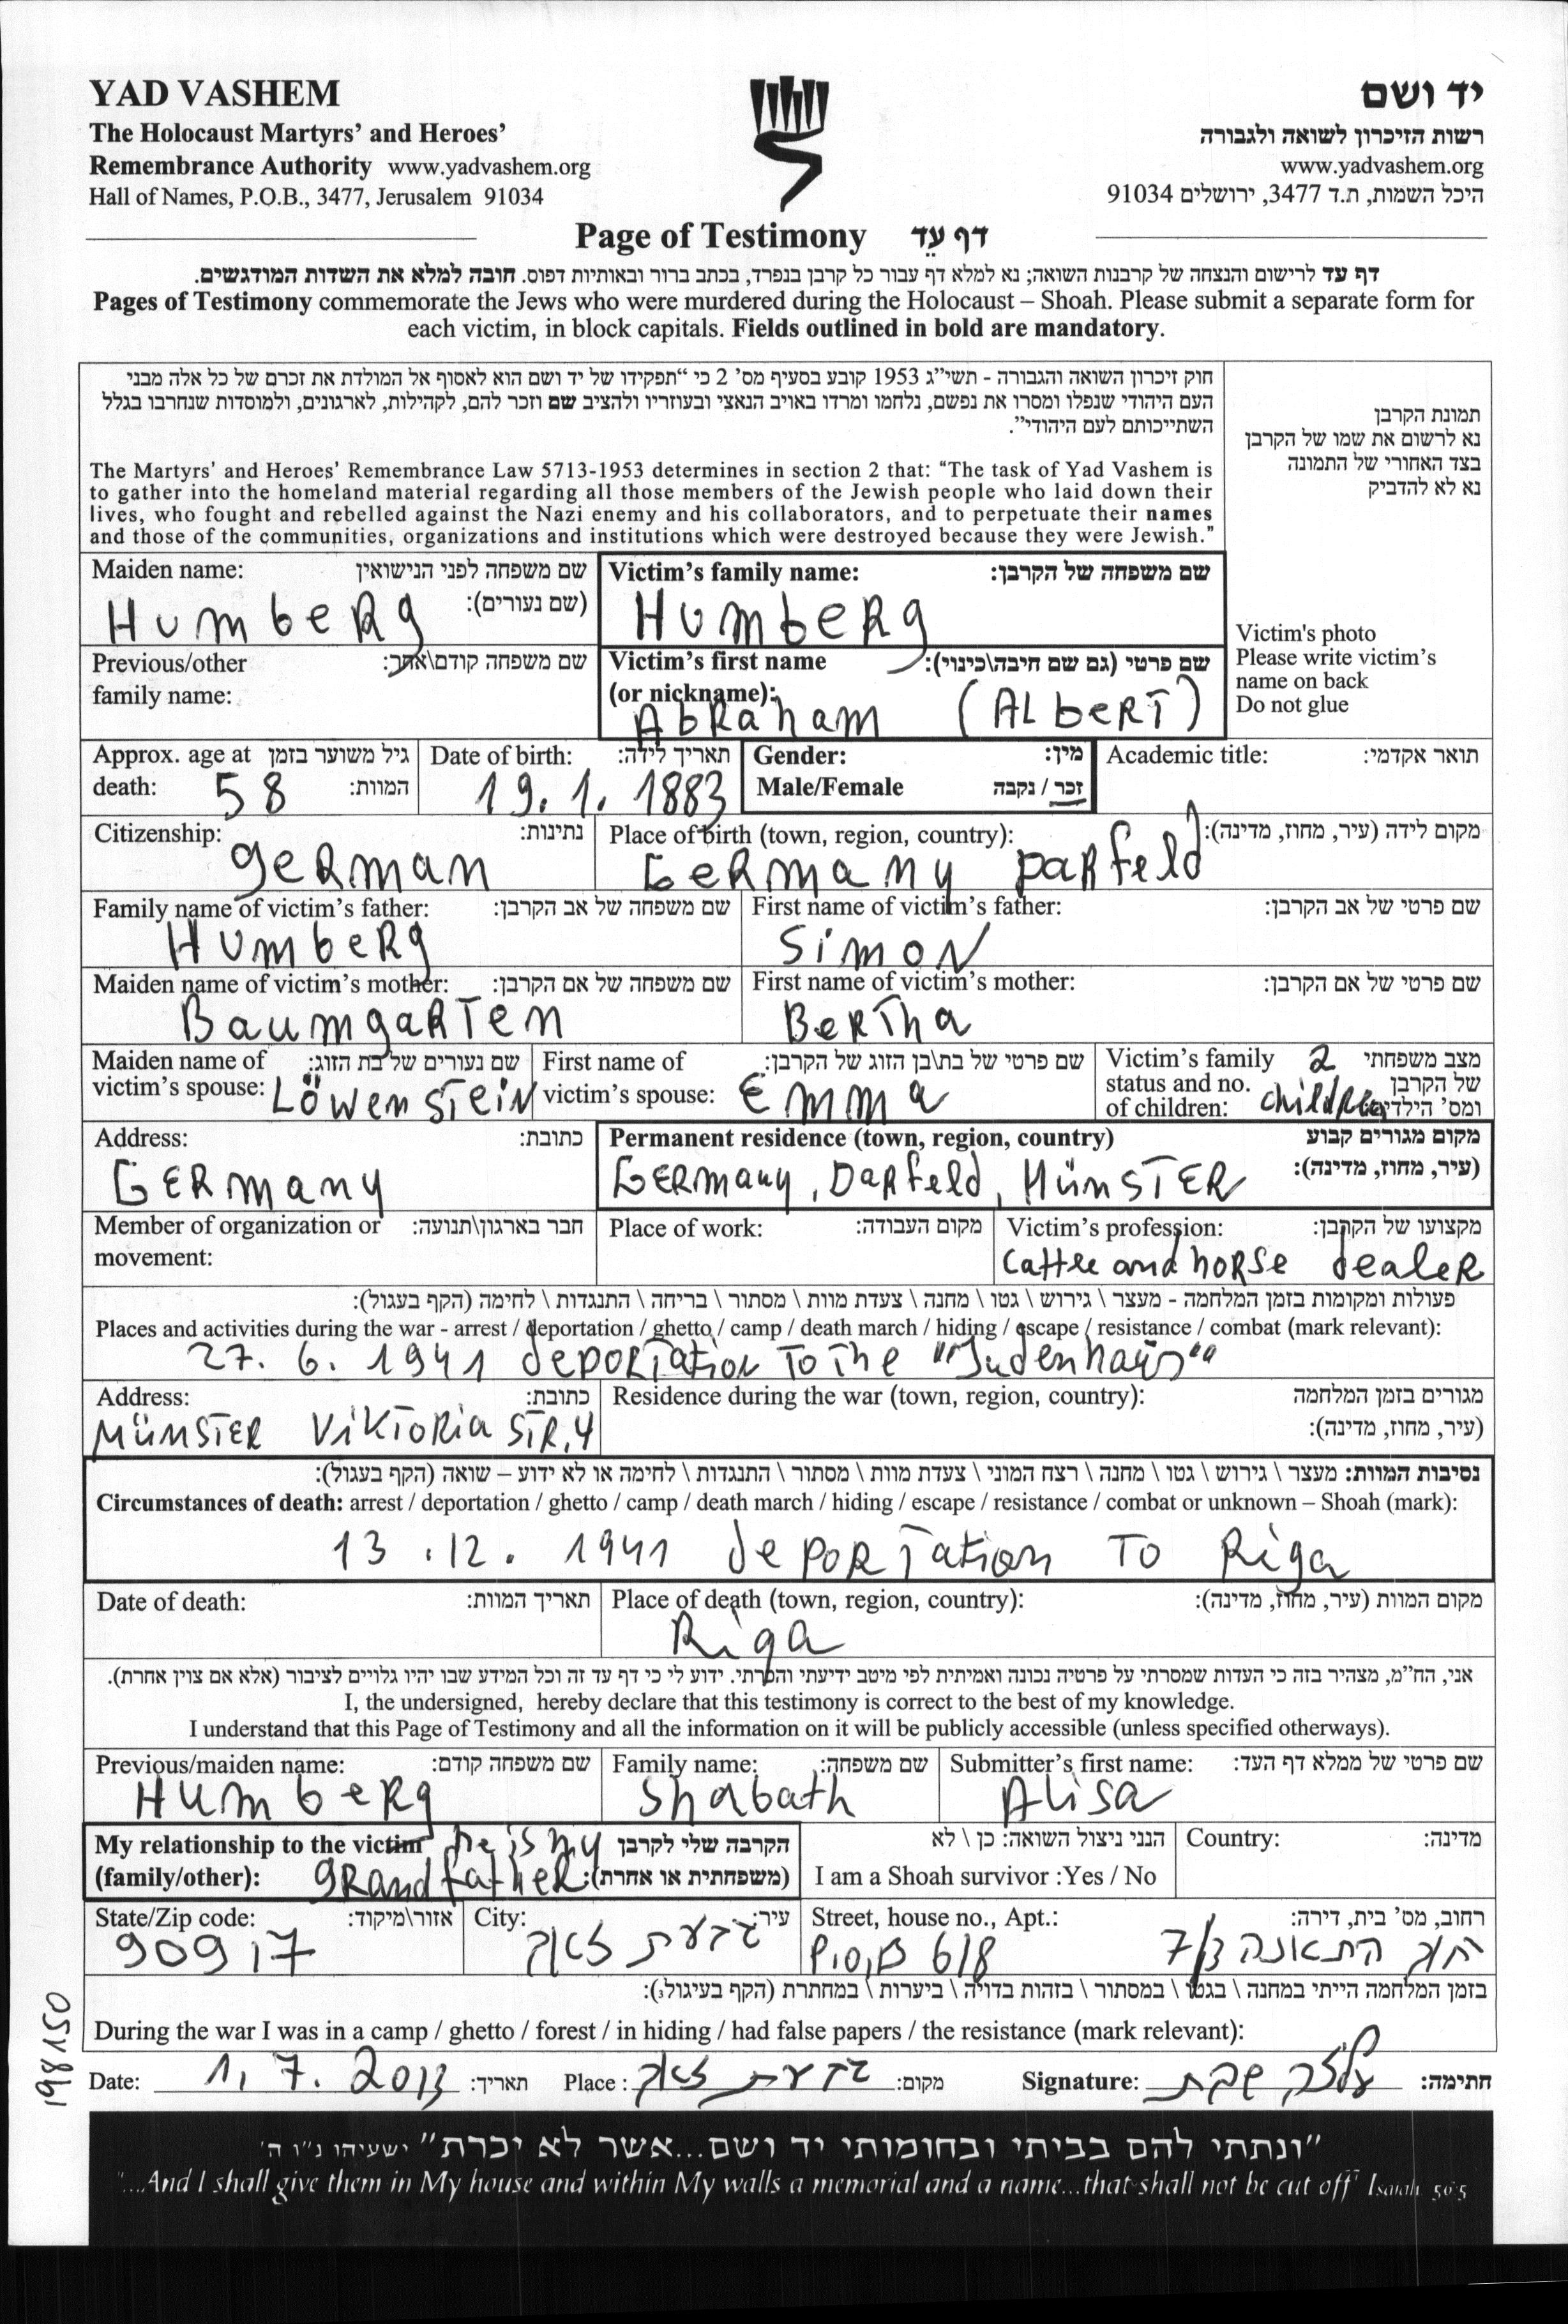 YAD VASHEM
The Holocaust Martyrs' and Heroes'
Remembrance Authority www.yadvashem.org
Hall of Names, P.O.B., 3477, Jerusalem 91034
יד ושם
רשות הזיכרון לשואה ולגבורה
www.yadvashem.org
היכל השמות, ת.ד 3477, ירושלים 91034
Page of Testimony דף עֵד
דף עד לרישום והנצחה של קרבנות השואה; נא למלא דף עבור כל קרבן בנפרד, בכתב ברור ובאותיות דפוס. חובה למלא את השדות המודגשים.
Pages of Testimony commemorate the Jews who were murdered during the Holocaust – Shoah. Please submit a separate form for
each victim, in block capitals. Fields outlined in bold are mandatory.
חוק זיכרון השואה והגבורה - תשי"ג 1953 קובע בסעיף מס' 2 כי "תפקידו של יד ושם הוא לאסוף אל המולדת את זכרם של כל אלה מבני
העם היהודי שנפלו ומסרו את נפשם, נלחמו ומרדו באויב הנאצי ובעוזריו ולהציב שם וזכר להם, לקהילות, לארגונים, ולמוסדות שנחרבו בגלל
השתייכותם לעם היהודי".
The Martyrs' and Heroes' Remembrance Law 5713-1953 determines in section 2 that: "The task of Yad Vashem is
to gather into the homeland material regarding all those members of the Jewish people who laid down their
lives, who fought and rebelled against the Nazi enemy and his collaborators, and to perpetuate their names
and those of the communities, organizations and institutions which were destroyed because they were Jewish."
תמונת הקרבן
נא לרשום את שמו של הקרבן
בצד האחורי של התמונה
נא לא להדביק
Victim's photo
Please write victim's
name on back
Do not glue
Maiden name: שם משפחה לפני הנישואין
(שם נעורים):
Humberg
Victim's family name: שם משפחה של הקרבן:
Humberg
Previous/other שם משפחה קודם\אחר:
family name:
Victim's first name שם פרטי (גם שם חיבה\כינוי):
(or nickname):
Abraham (Albert)
Approx. age at גיל משוער בזמן
death: 58 המוות:
Date of birth: תאריך לידה:
19.1.1883
Gender: מין:
Male/Female זכר / נקבה
Academic title: תואר אקדמי:
Citizenship: נתינות:
german
Place of birth (town, region, country): מקום לידה (עיר, מחוז, מדינה):
Germany Darfeld
Family name of victim's father: שם משפחה של אב הקרבן:
Humberg
First name of victim's father: שם פרטי של אב הקרבן:
Simon
Maiden name of victim's mother: שם משפחה של אם הקרבן:
Baumgarten
First name of victim's mother: שם פרטי של אם הקרבן:
Bertha
Maiden name of שם נעורים של בת הזוג:
victim's spouse: Löwenstein
First name of שם פרטי של בת\בן הזוג של הקרבן:
victim's spouse: Emma
Victim's family 2 מצב משפחתי
status and no. של הקרבן
of children: children ומס' הילדים:
Address: כתובת:
Germany
Permanent residence (town, region, country) מקום מגורים קבוע
(עיר, מחוז, מדינה):
Germany, Darfeld, Münster
Member of organization or חבר בארגון\תנועה:
movement:
Place of work: מקום העבודה:
Victim's profession: מקצועו של הקרבן:
cattle and horse dealer
פעולות ומקומות בזמן המלחמה - מעצר \ גירוש \ גטו \ מחנה \ צעדת מוות \ מסתור \ בריחה \ התנגדות \ לחימה (הקף בעגול):
Places and activities during the war - arrest / deportation / ghetto / camp / death march / hiding / escape / resistance / combat (mark relevant):
27. 6. 1941 deportation to the "Judenhaus"
Address: כתובת:
Münster Viktoria Str. 4
Residence during the war (town, region, country): מגורים בזמן המלחמה
(עיר, מחוז, מדינה):
נסיבות המוות: מעצר \ גירוש \ גטו \ מחנה \ רצח המוני \ צעדת מוות \ מסתור \ התנגדות \ לחימה או לא ידוע – שואה (הקף בעגול):
Circumstances of death: arrest / deportation / ghetto / camp / death march / hiding / escape / resistance / combat or unknown – Shoah (mark):
13.12. 1941 deportation to Riga
Date of death: תאריך המוות:
Place of death (town, region, country): מקום המוות (עיר, מחוז, מדינה):
Riga
אני, הח"מ, מצהיר בזה כי העדות שמסרתי על פרטיה נכונה ואמיתית לפי מיטב ידיעתי והכרתי. ידוע לי כי דף עד זה וכל המידע שבו יהיו גלויים לציבור (אלא אם צוין אחרת).
I, the undersigned, hereby declare that this testimony is correct to the best of my knowledge.
I understand that this Page of Testimony and all the information on it will be publicly accessible (unless specified otherways).
Previous/maiden name: שם משפחה קודם:
Humberg
Family name: שם משפחה:
Shabath
Submitter's first name: שם פרטי של ממלא דף העד:
Alisa
My relationship to the victim he is my הקרבה שלי לקרבן
(family/other): grandfather (משפחתית או אחרת):
הנני ניצול השואה: כן \ לא
I am a Shoah survivor :Yes / No
Country: מדינה:
State/Zip code: אזור\מיקוד:
90917
City: עיר:
גבעת זאב
Street, house no., Apt.: רחוב, מס' בית, דירה:
P.O.B 618 חוג התאנה 7/3
בזמן המלחמה הייתי במחנה \ בגטו \ במסתור \ בזהות בדויה \ ביערות \ במחתרת (הקף בעיגול):
During the war I was in a camp / ghetto / forest / in hiding / had false papers / the resistance (mark relevant):
Date: 1.7.2013 תאריך: Place: גבעת זאב מקום: Signature: עליזה שבת חתימה:
198150
"ונתתי להם בביתי ובחומותי יד ושם...אשר לא יכרת" ישעיהו נ"ו ה'
"...And I shall give them in My house and within My walls a memorial and a name...that shall not be cut off" Isaiah 56:5